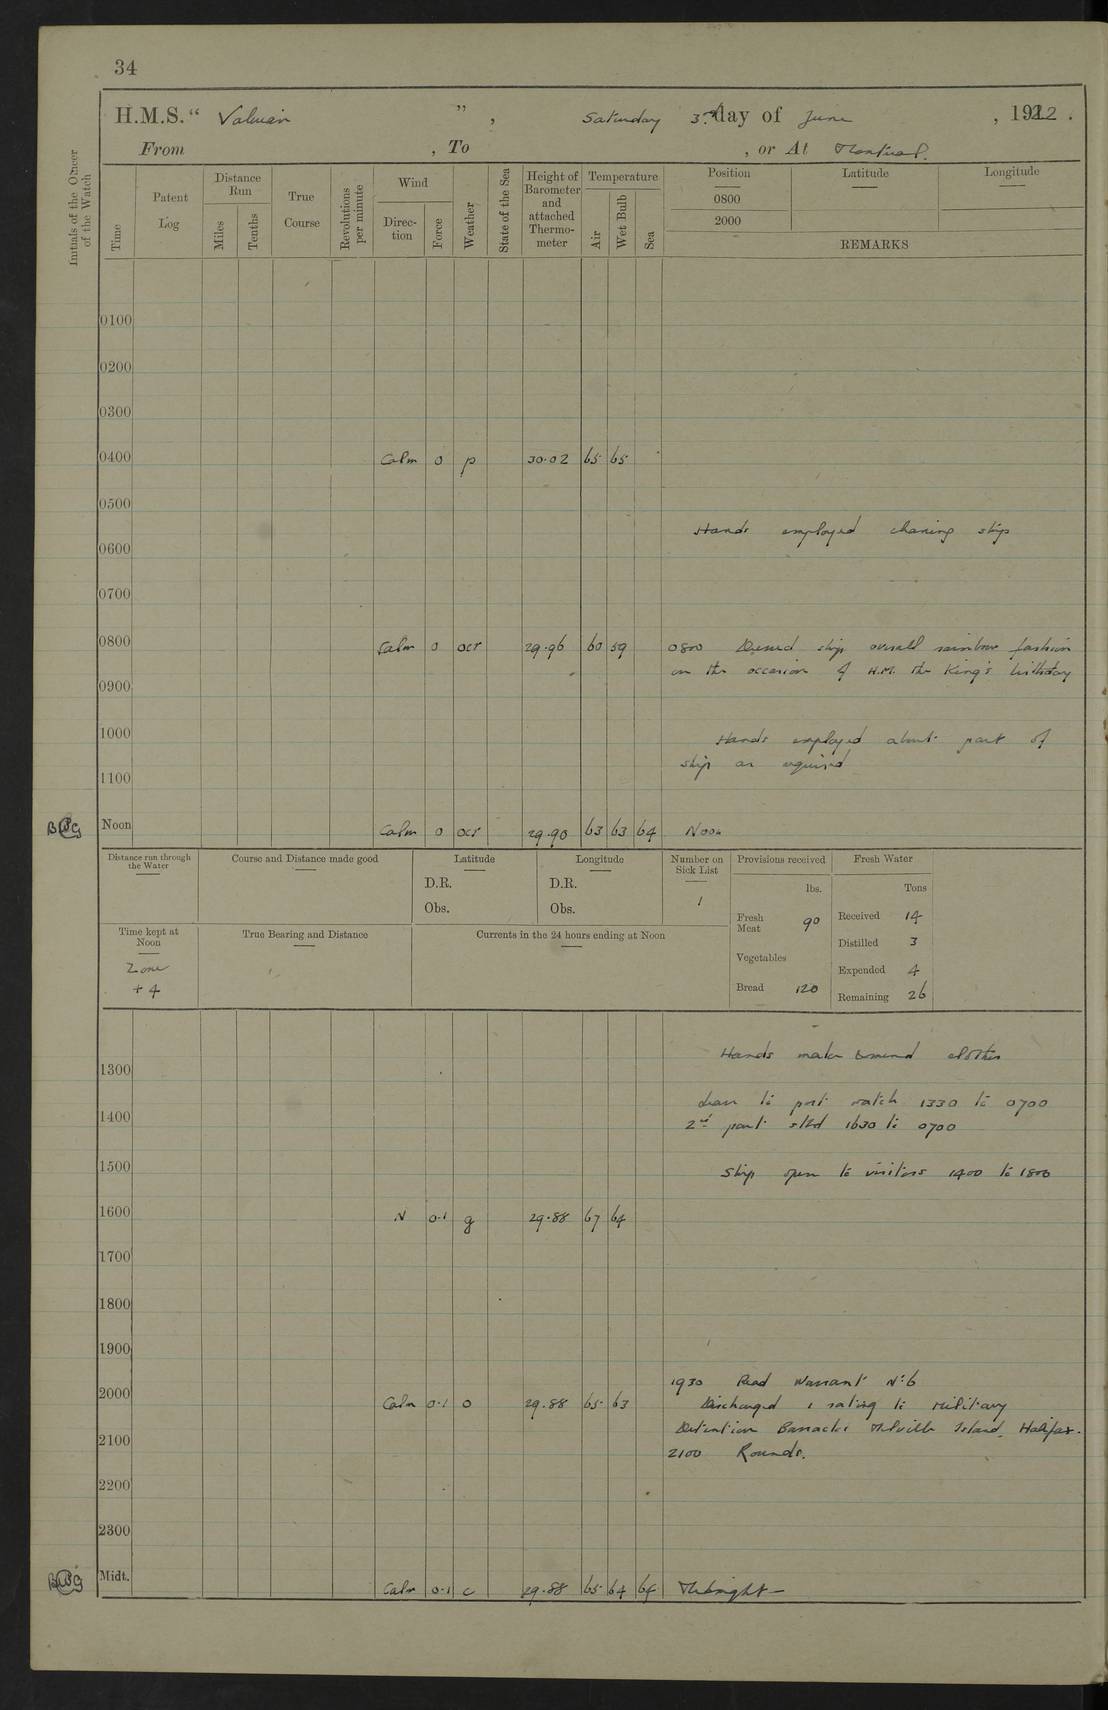 34
H.M.S. " Valerian ", Saturday 3rd day of June, 1922.
From , To , or At Montreal.
Initials of the Officer of the Watch
Time
Patent Log
Distance Run
Miles
Tenths
True Course
Revolutions per minute
Wind
Direction
Force
Weather
State of the Sea
Height of Barometer and attached Thermometer
Temperature
Air
Wet Bulb
Sea
Position Latitude Longitude
0800
2000
REMARKS
0100
0200
0300
0400 Calm 0 p 30.02 65 65
0500
Hands employed cleaning ship
0600
0700
0800 Calm 0 ocr 29.96 60 59 0800 Dressed ship overall rainbow fashion
on the occasion of H.M. the King's birthday
0900
1000 Hands employed about part of
ship as required
1100
Noon Calm 0 ocr 29.90 63 63 64 Noon
Distance run through the Water
Course and Distance made good
Latitude
D.R.
Obs.
Longitude
D.R.
Obs.
Number on Sick List
1
Provisions received
lbs.
Fresh Meat 90
Vegetables
Bread 120
Fresh Water
Tons
Received 14
Distilled 3
Expended 4
Remaining 26
Time kept at Noon
Zone
+ 4
True Bearing and Distance
Currents in the 24 hours ending at Noon
Hands make & mend clothes
1300
Leave to port watch 1330 to 0700
1400
2nd part stbd 1630 to 0700
1500 Ship open to visitors 1400 to 1800
1600 N 0.1 g 29.88 67 64
1700
1800
1900
1930 Read Warrant No 6
2000 Calm 0.1 o 29.88 65 63 Discharged 1 rating to Military
Detention Barracks Melville Island, Halifax.
2100
2100 Rounds.
2200
2300
Midt. Calm 0.1 c 29.88 65 64 64 Midnight